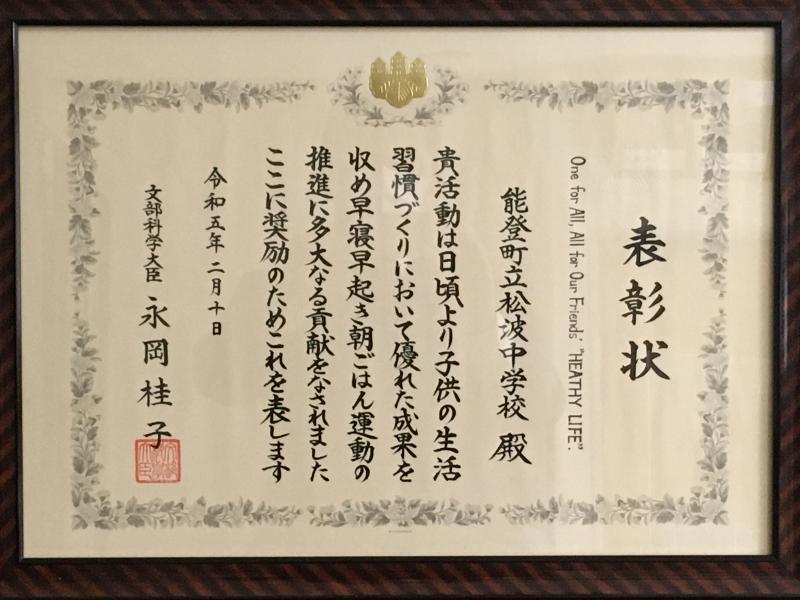 表彰状
One for All, All for Our Friends' "HEATHY LIFE".
能登町立松波中学校 殿
貴活動は日頃より子供の生活
習慣づくりにおいて優れた成果を
収め早寝早起き朝ごはん運動の
推進に多大なる貢献をなされました
ここに奨励のためこれを表します
令和五年二月十日
文部科学大臣 永岡桂子